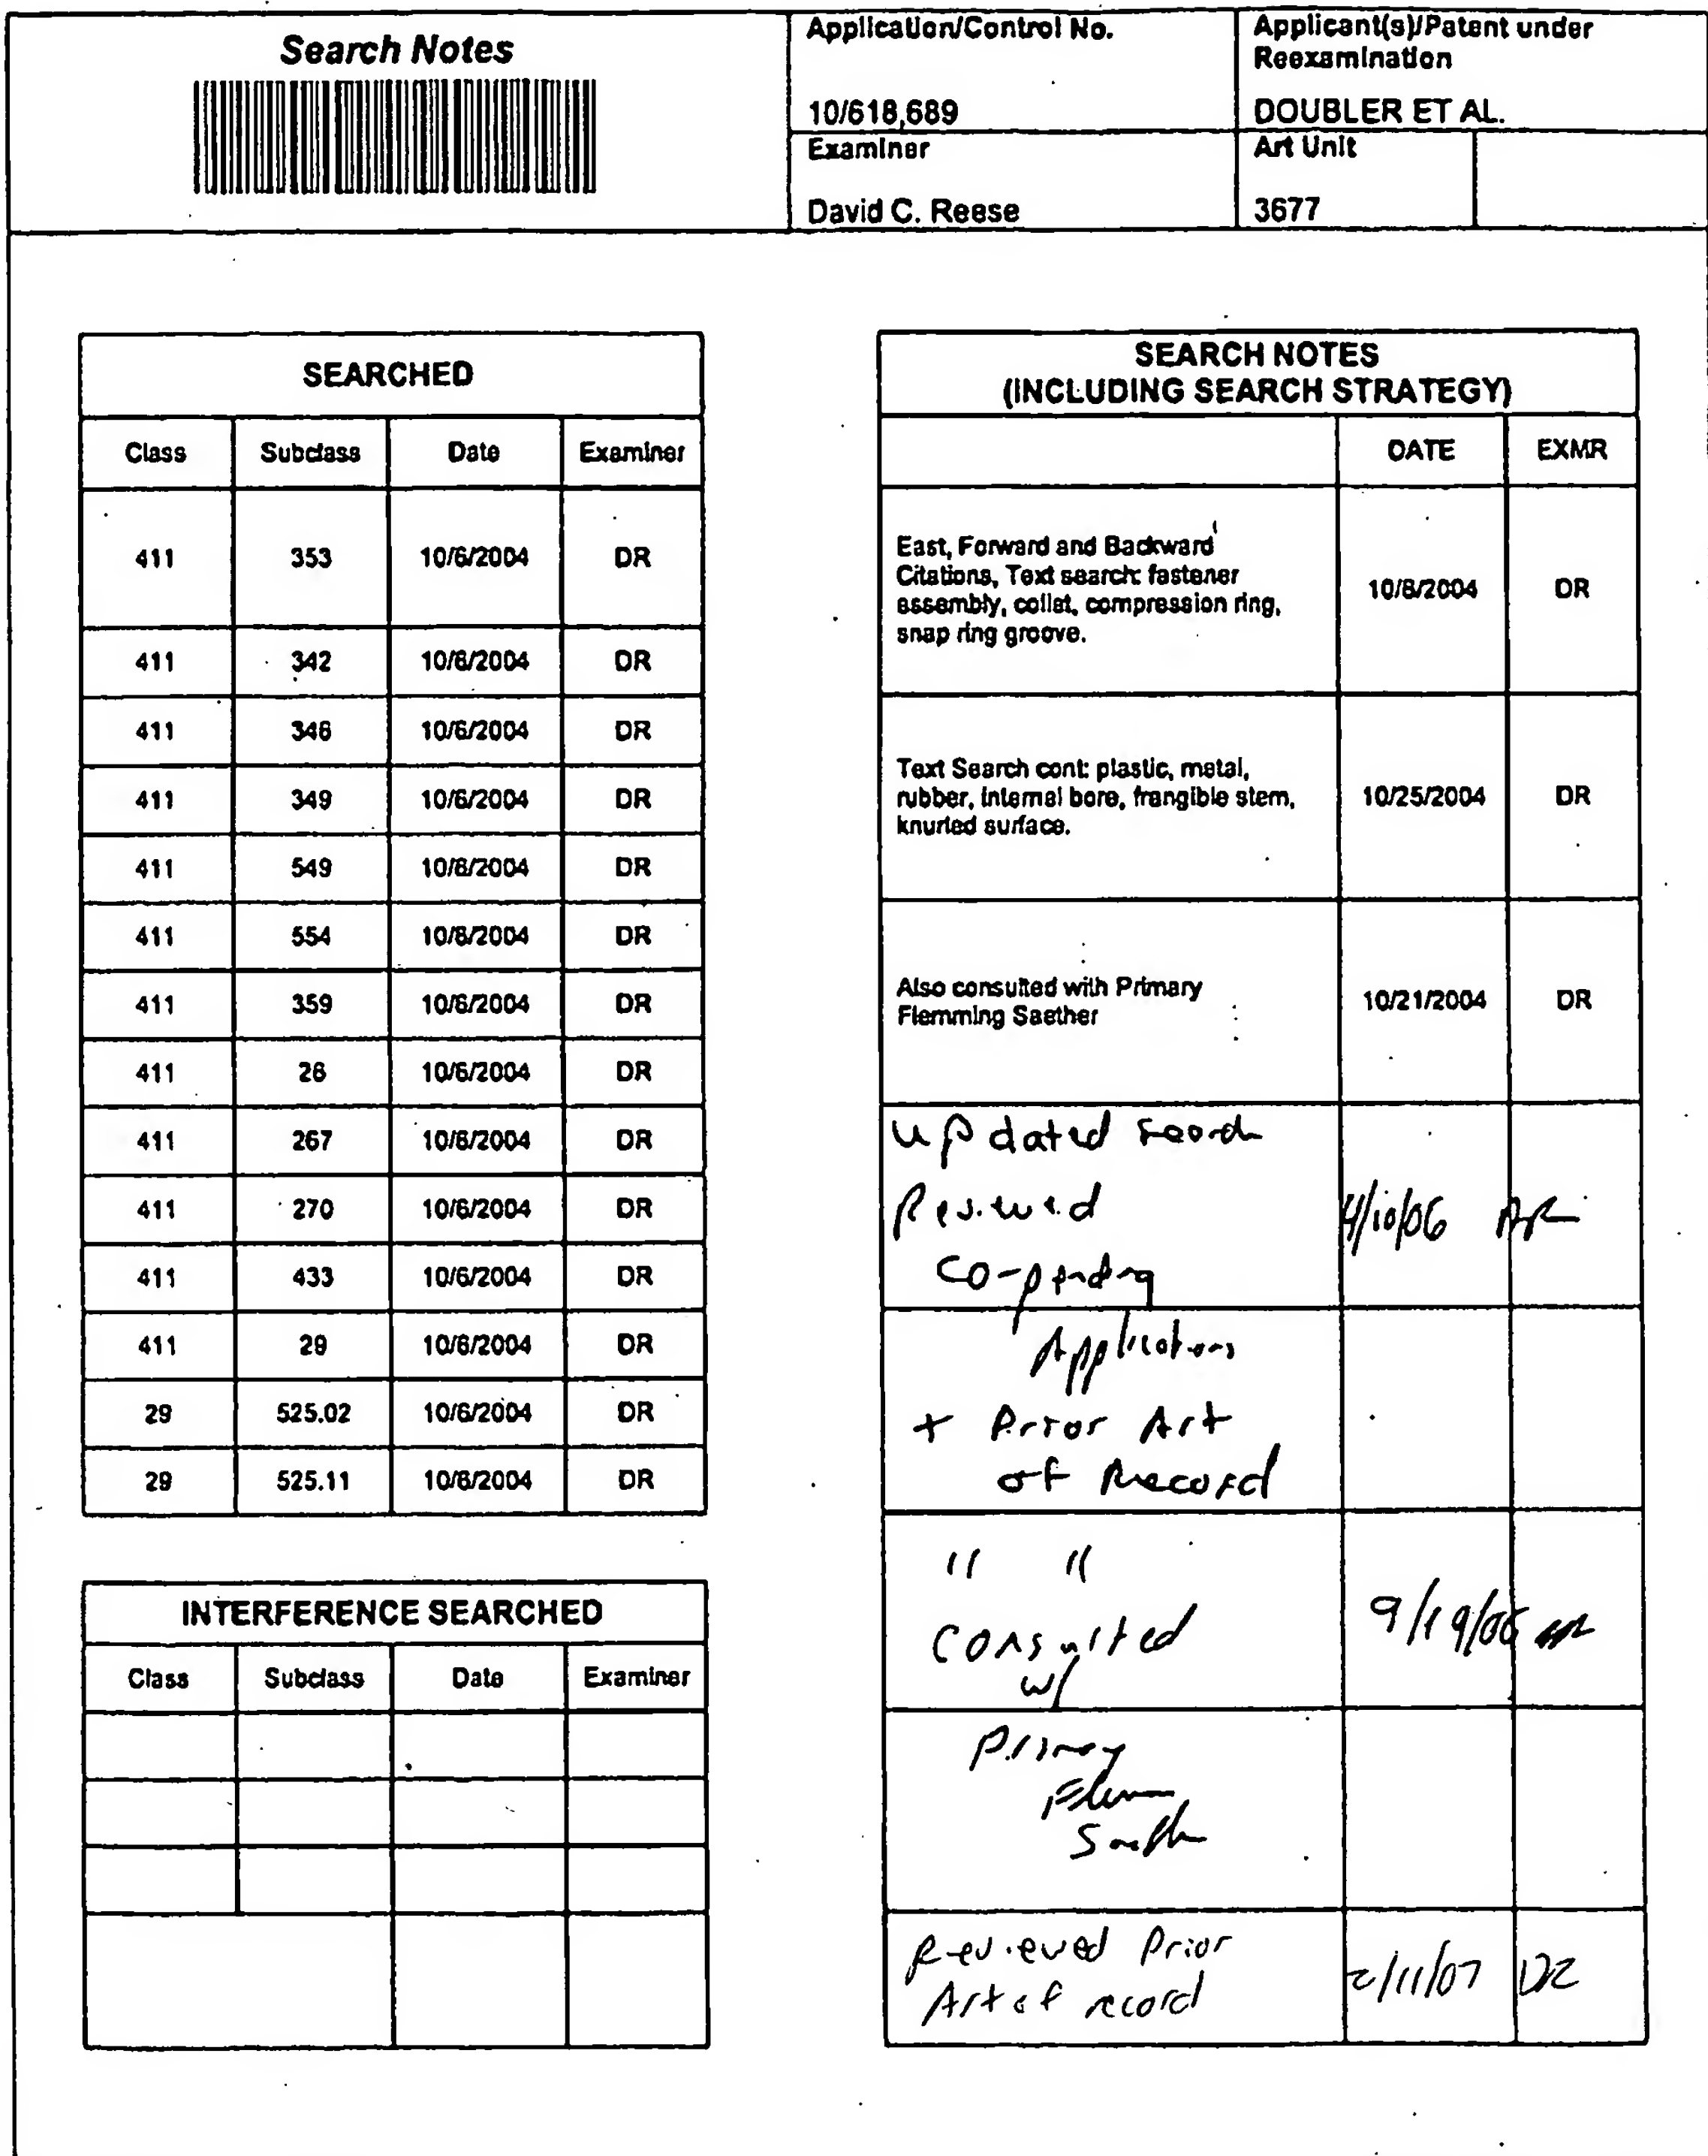 Search Notes
Application/Control No.
10/618,689
Applicant(s)/Patent under
Reexamination
DOUBLER ET AL.
Examiner
David C. Reese
Art Unit
3677
SEARCHED
Class Subclass Date Examiner
411 353 10/6/2004 DR
411 342 10/6/2004 DR
411 346 10/6/2004 DR
411 349 10/6/2004 DR
411 549 10/6/2004 DR
411 554 10/6/2004 DR
411 359 10/6/2004 DR
411 26 10/6/2004 DR
411 267 10/6/2004 DR
411 270 10/6/2004 DR
411 433 10/6/2004 DR
411 29 10/6/2004 DR
29 525.02 10/6/2004 DR
29 525.11 10/6/2004 DR
INTERFERENCE SEARCHED
Class Subclass Date Examiner
SEARCH NOTES
(INCLUDING SEARCH STRATEGY)
DATE EXMR
East, Forward and Backward
Citations, Text search: fastener
assembly, collet, compression ring,
snap ring groove.
10/6/2004 DR
Text Search cont: plastic, metal,
rubber, internal bore, frangible stem,
knurled surface.
10/25/2004 DR
Also consulted with Primary
Flemming Saether
10/21/2004 DR
updated search
Reviewed
Co-pending
4/10/06 DR
Applications
+ Prior Art
of Record
" "
Consulted
w/
9/19/06 DR
Primary
Flemming
Saether
Reviewed Prior
Art of record
2/11/07 DR